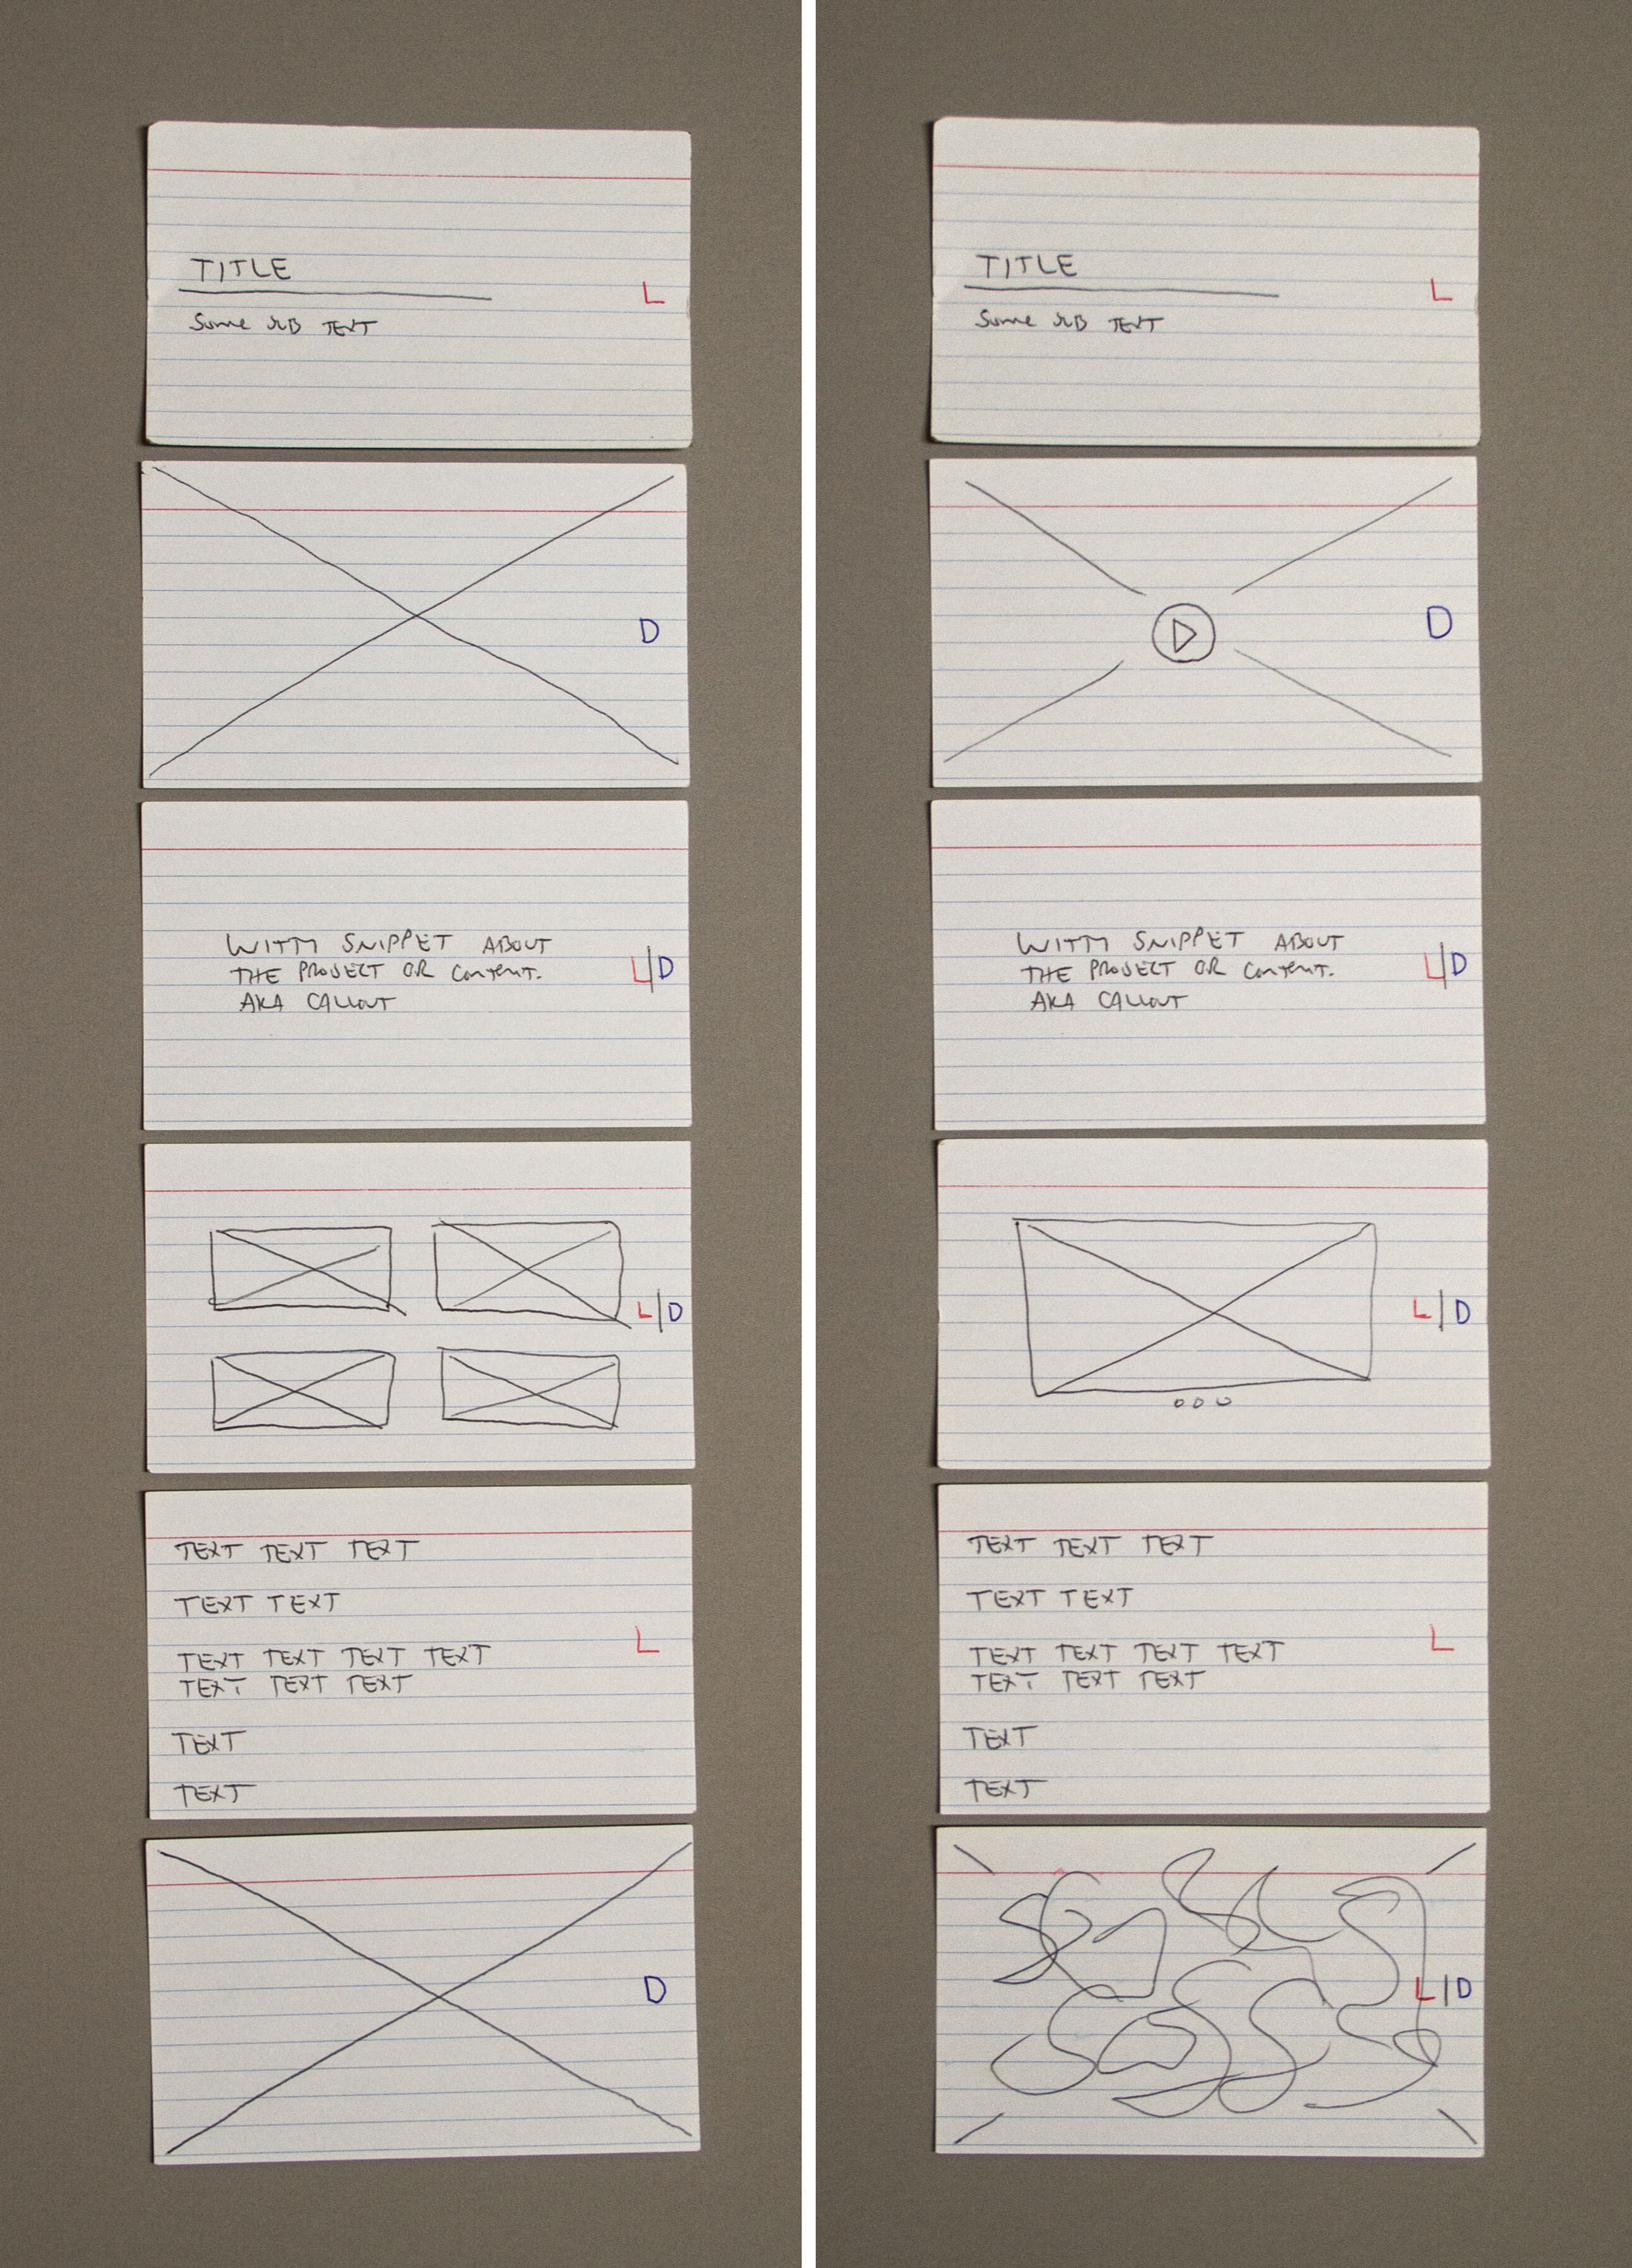 TITLE
L
Some SUB TEXT
D
WITTY SNIPPET ABOUT
THE PROJECT OR CONTENT.
L|D
AKA CALLOUT
L|D
TEXT TEXT TEXT
TEXT TEXT
L
TEXT TEXT TEXT TEXT
TEXT TEXT TEXT
TEXT
TEXT
D
TITLE
L
Some SUB TEXT
D
WITTY SNIPPET ABOUT
THE PROJECT OR CONTENT.
L|D
AKA CALLOUT
L|D
TEXT TEXT TEXT
TEXT TEXT
L
TEXT TEXT TEXT TEXT
TEXT TEXT TEXT
TEXT
TEXT
L|D